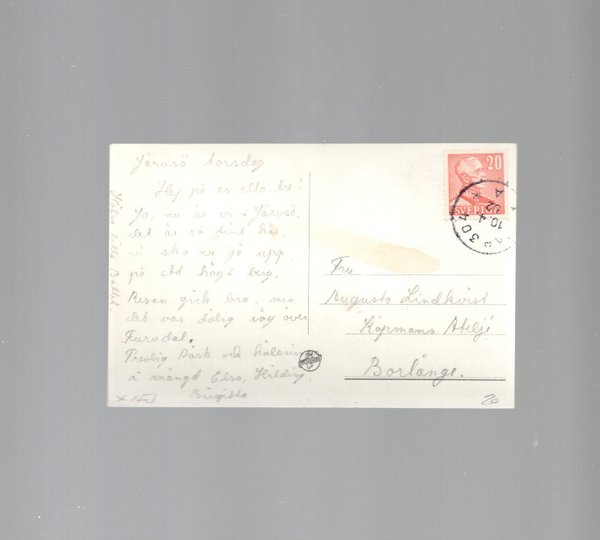 Järvsö torsdag
Hej på er alla tre!
Ja, nu är vi i Järvsö,
det är så fint här,
vi ska nu gå upp
på ett högt berg.
Resan gick bra, men
det var dålig väg över
Furudal.
Trevlig Påsk och hälsning
i mängd Elsa, Hilding
Birgitta
20
SVERIGE
10.4
Fru
Augusta Lindkvist
Köpmans Ateljé
Borlänge.
20